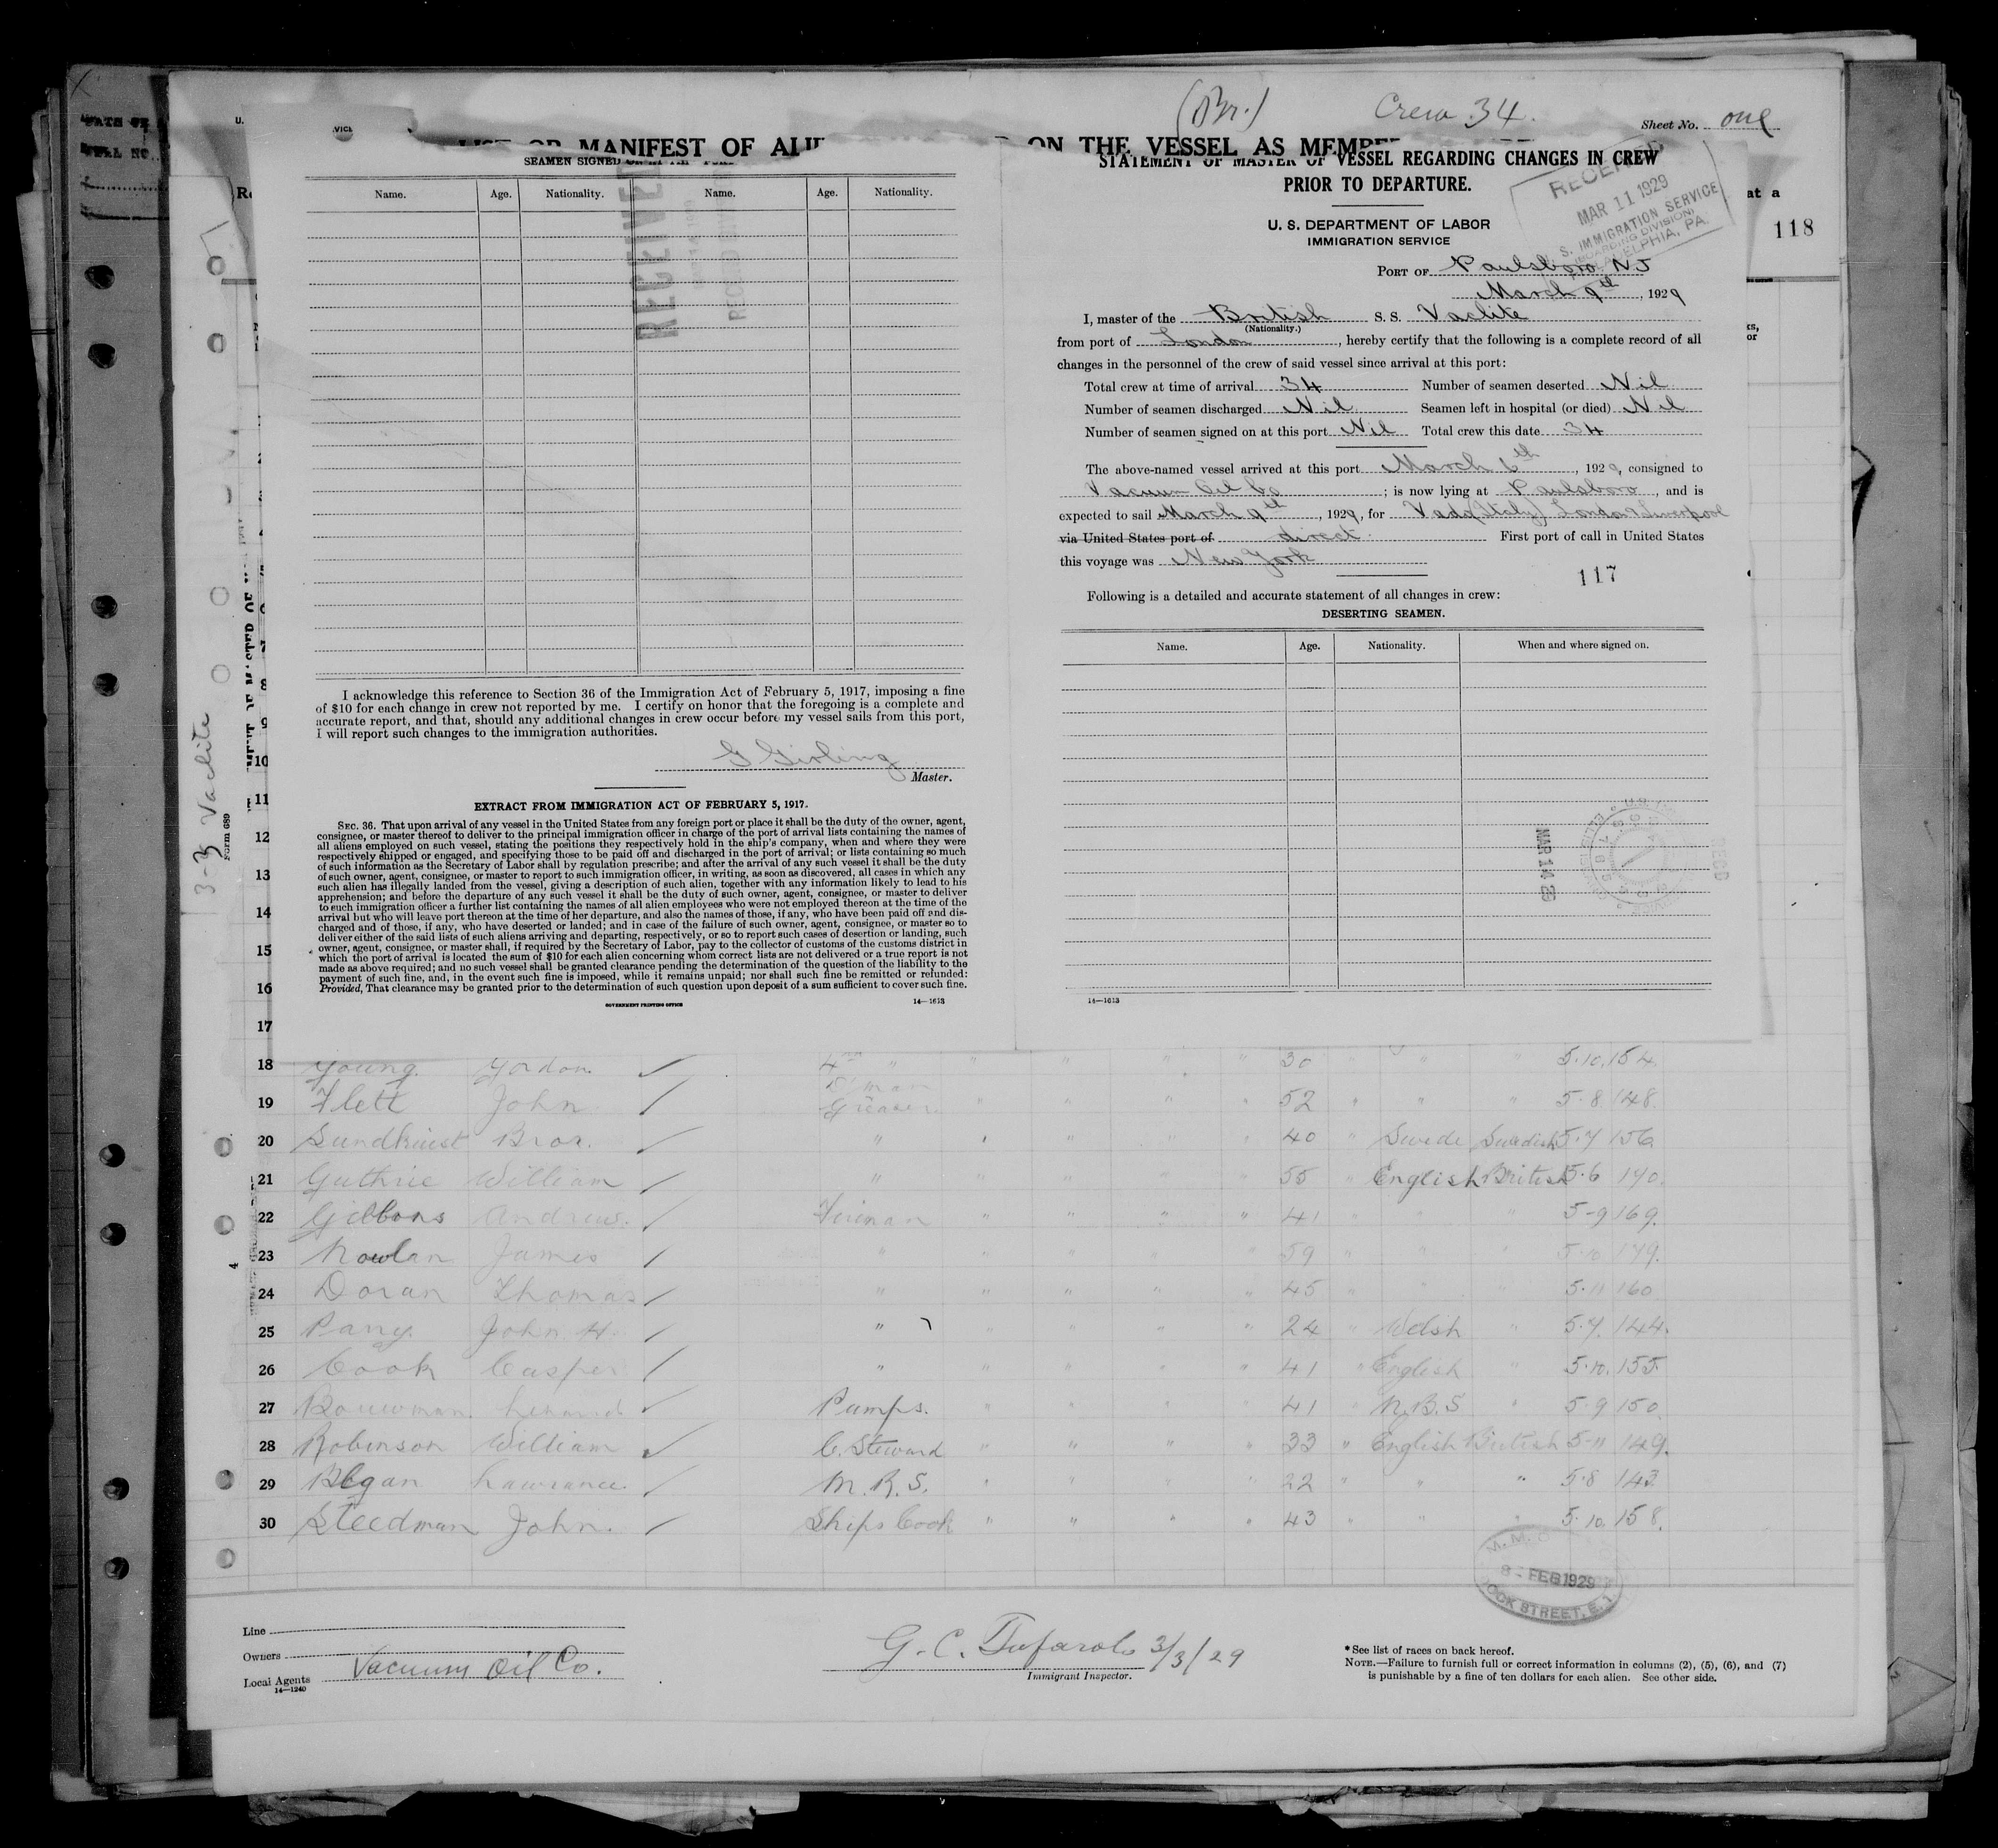 (Br.) Crew 34. Sheet No. one
LIST OR MANIFEST OF ALI ON THE VESSEL AS MEMBE
118
SEAMEN SIGNED
Name. Age. Nationality. Name. Age. Nationality.
RECEIVED
I acknowledge this reference to Section 36 of the Immigration Act of February 5, 1917, imposing a fine
of $10 for each change in crew not reported by me. I certify on honor that the foregoing is a complete and
accurate report, and that, should any additional changes in crew occur before my vessel sails from this port,
I will report such changes to the immigration authorities.
G Girling
Master.
EXTRACT FROM IMMIGRATION ACT OF FEBRUARY 5, 1917.
SEC. 36. That upon arrival of any vessel in the United States from any foreign port or place it shall be the duty of the owner, agent,
consignee, or master thereof to deliver to the principal immigration officer in charge of the port of arrival lists containing the names of
all aliens employed on such vessel, stating the positions they respectively hold in the ship's company, when and where they were
respectively shipped or engaged, and specifying those to be paid off and discharged in the port of arrival; or lists containing so much
of such information as the Secretary of Labor shall by regulation prescribe; and after the arrival of any such vessel it shall be the duty
of such owner, agent, consignee, or master to report to such immigration officer, in writing, as soon as discovered, all cases in which any
such alien has illegally landed from the vessel, giving a description of such alien, together with any information likely to lead to his
apprehension; and before the departure of any such vessel it shall be the duty of such owner, agent, consignee, or master to deliver
to such immigration officer a further list containing the names of all alien employees who were not employed thereon at the time of the
arrival but who will leave port thereon at the time of her departure, and also the names of those, if any, who have been paid off and dis-
charged and of those, if any, who have deserted or landed; and in case of the failure of such owner, agent, consignee, or master so to
deliver either of the said lists of such aliens arriving and departing, respectively, or so to report such cases of desertion or landing, such
owner, agent, consignee, or master shall, if required by the Secretary of Labor, pay to the collector of customs of the customs district in
which the port of arrival is located the sum of $10 for each alien concerning whom correct lists are not delivered or a true report is not
made as above required; and no such vessel shall be granted clearance pending the determination of the question of the liability to the
payment of such fine, and, in the event such fine is imposed, while it remains unpaid; nor shall such fine be remitted or refunded:
Provided, That clearance may be granted prior to the determination of such question upon deposit of a sum sufficient to cover such fine.
GOVERNMENT PRINTING OFFICE 14—1613
STATEMENT OF MASTER OF VESSEL REGARDING CHANGES IN CREW
PRIOR TO DEPARTURE.
RECEIVED
MAR 11 1929
U. S. IMMIGRATION SERVICE
(BOARDING DIVISION)
PHILADELPHIA, PA.
U. S. DEPARTMENT OF LABOR
IMMIGRATION SERVICE
PORT OF Paulsboro, NJ
March 9th, 1929
I, master of the British S. S. Vaclite
(Nationality.)
from port of London, hereby certify that the following is a complete record of all
changes in the personnel of the crew of said vessel since arrival at this port:
Total crew at time of arrival 34 Number of seamen deserted Nil
Number of seamen discharged Nil Seamen left in hospital (or died) Nil
Number of seamen signed on at this port Nil Total crew this date 34
The above-named vessel arrived at this port March 6th, 1929, consigned to
Vacuum Oil Co; is now lying at Paulsboro, and is
expected to sail March 9th, 1929, for Vado (Italy) London & Liverpool
via United States port of direct. First port of call in United States
this voyage was New York
117
Following is a detailed and accurate statement of all changes in crew:
DESERTING SEAMEN.
Name. Age. Nationality. When and where signed on.
MAR 14 29
14—1613
3-3 Vaclite
Form 689
10
11
12
13
14
15
16
17
18 Young Gordon 4th " " " " " 30 " " " 5.10. 154.
19 Flett John D'man Greaser " " " " 52 " " " 5.8. 148.
20 Sundkvist Bror. " " " " " 40 " Swede Swedish 5.7 156
21 Guthrie William " " " " " 55 " English British 5.6 140.
22 Gibbons Andrew. Fireman " " " " 41 " " " 5-9 169.
23 Nowlan James " " " " " 59 " " " 5.10. 179.
24 Doran Thomas " " " " " 45 " " " 5.11 160
25 Parry John H. " " " " " 24 " Welsh " 5.7. 144.
26 Cook Casper " " " " " 41 " English " 5.10. 155
27 Bouwman Pumps. " " " " 41 " N.B.S " 5.9 150.
28 Robinson William C. Steward " " " " 33 " English British 5-11 149.
29 Regan Lawrance. M.R.S. " " " " 22 " " " 5.8 143
30 Steedman John. Ships Cook " " " " 43 " " " 5.10. 158.
8 - FEB 1929
DOCK STREET, E. 1
Line
Owners
Local Agents Vacuum Oil Co.
14—1240
G. C. 3/3/29
Immigrant Inspector.
*See list of races on back hereof.
NOTE.—Failure to furnish full or correct information in columns (2), (5), (6), and (7)
is punishable by a fine of ten dollars for each alien. See other side.